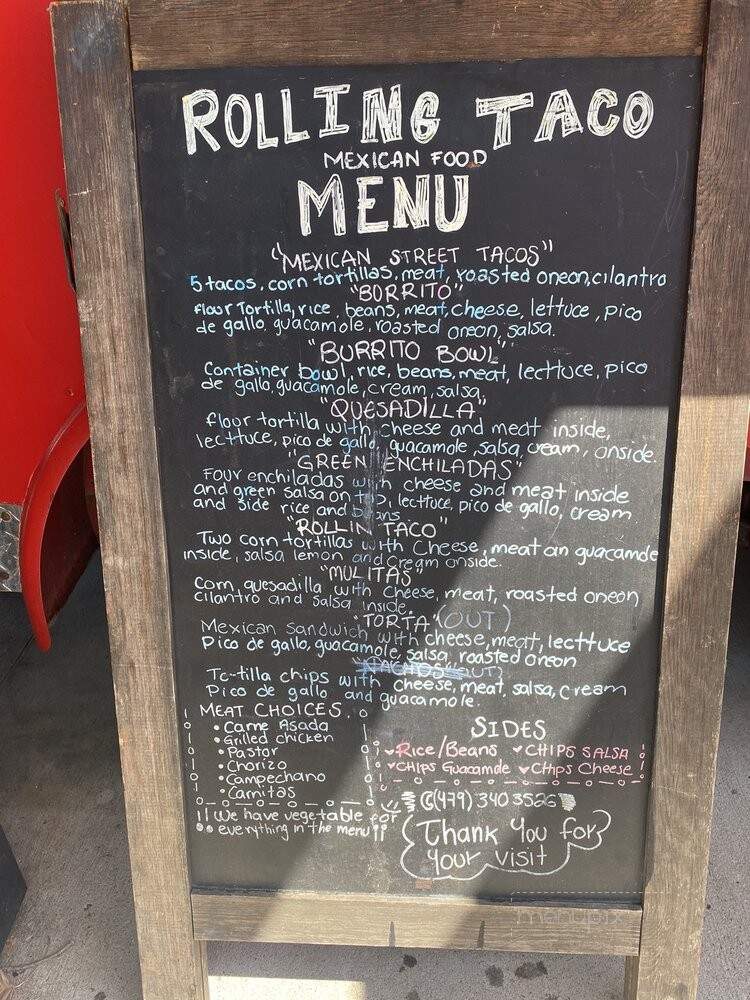 ROLLING TACO
MEXICAN FOOD
MENU
"MEXICAN STREET TACOS"
5 tacos, corn tortillas, meat, roasted oneon, cilantro
"BORRITO"
flour Tortilla, rice, beans, meat, cheese, lettuce, pico
de gallo, guacamole, roasted oneon, salsa.
"BURRITO BOWL"
Container bowl, rice, beans, meat, lecttuce, pico
de gallo, guacamole, cream, salsa,
"QUESADILLA"
flour tortilla with cheese and meat inside,
lecttuce, pico de gallo, guacamole, salsa, cream, onside.
"GREEN ENCHILADAS"
Four enchiladas with cheese and meat inside
and green salsa on top, lecttuce, pico de gallo, cream
and side rice and beans
"ROLLIN TACO"
Two corn tortillas with Cheese, meat an guacamole
inside, salsa lemon and cream onside.
"MULITAS"
Corn, quesadilla with cheese, meat, roasted oneon
cilantro and salsa inside.
"TORTA" (OUT)
Mexican sandwich with cheese, meat, lecttuce
Pico de gallo, guacamole, salsa, roasted oneon
"NACHOS" OUT
Tortilla chips with cheese, meat, salsa, cream
Pico de gallo and guacamole.
MEAT CHOICES.
• Carne Asada
• Grilled chicken
• Pastor
• Chorizo
• Campechano
• Carnitas
!! We have vegetable for
everything in the menu !!
SIDES
♥Rice/Beans ♥CHIPS SALSA
♥CHIPS Guacamole ♥Chips Cheese
(479) 340 3526
Thank you for
your visit
menupix